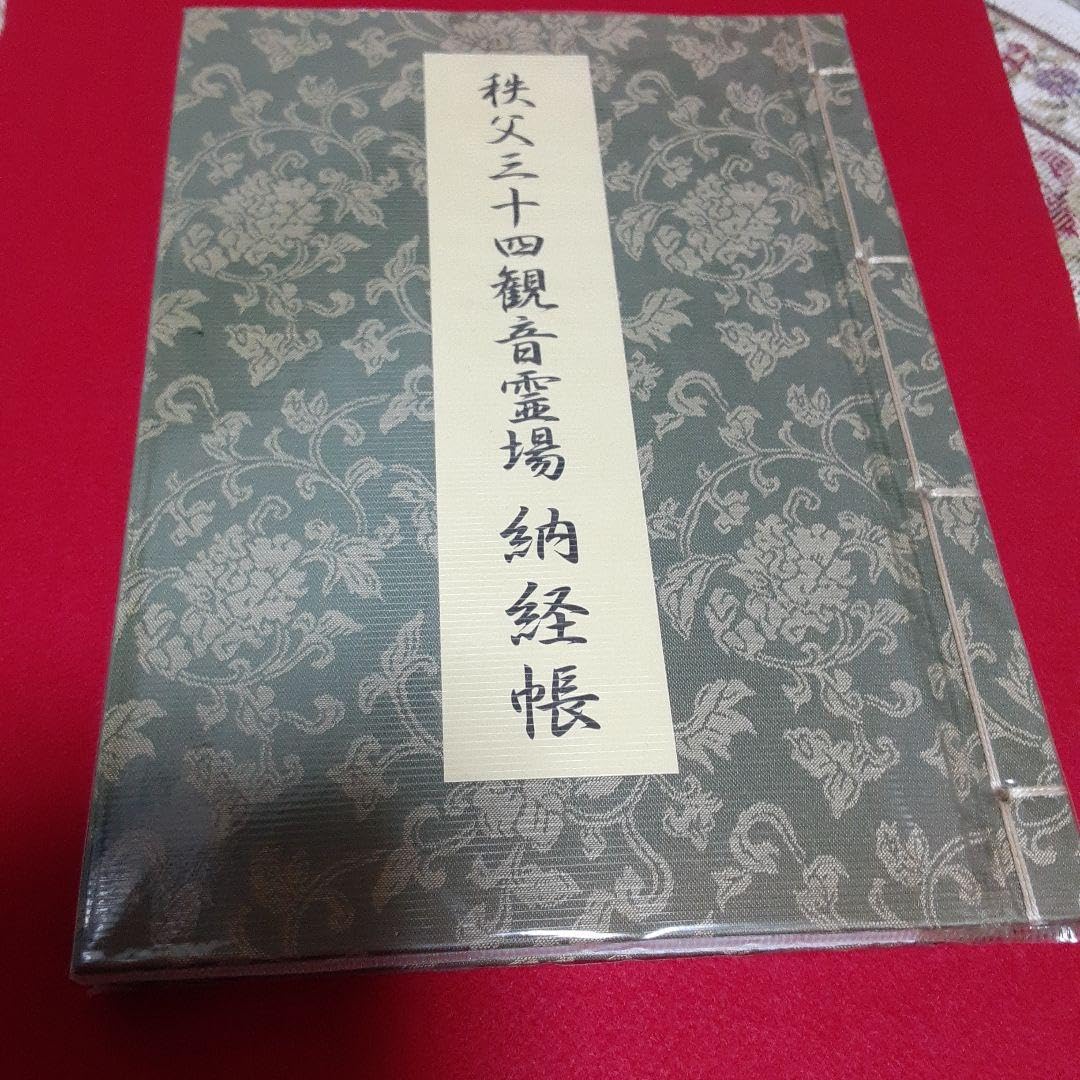 秩父三十四観音霊場 納経帳